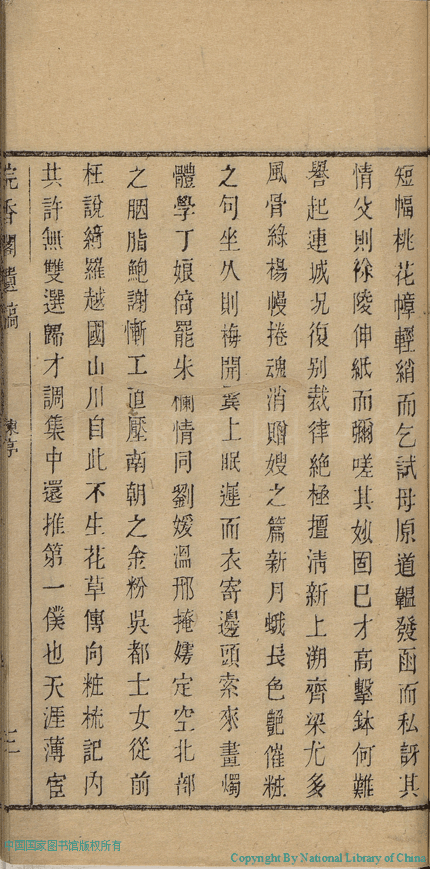 短幅桃花幛輕綃而乞試母原道韞發函而私訝其
情父則袮陵伸紙而彌嗟其妙固已才高擊鉢何難
譽起連城况復别裁律絶極擅清新上溯齊梁尤多
風骨綠楊幔捲魂消贈嫂之篇新月蛾長色艷催粧
之句坐久則梅開鬢上眠遲而衣寄邊頭索來畫燭
體學丁娘倚罷朱欄情同劉媛溫邢掩嫮定空北部
之胭脂鮑謝慚工直壓南朝之金粉吳都士女從前
枉說綺羅越國山川自此不生花草傳向粧梳記内
共許無雙選歸才調集中還推第一僕也天涯薄宦
浣香閣遺稿
陳序
二
中国国家图书馆版权所有
Copyright By National Library of China